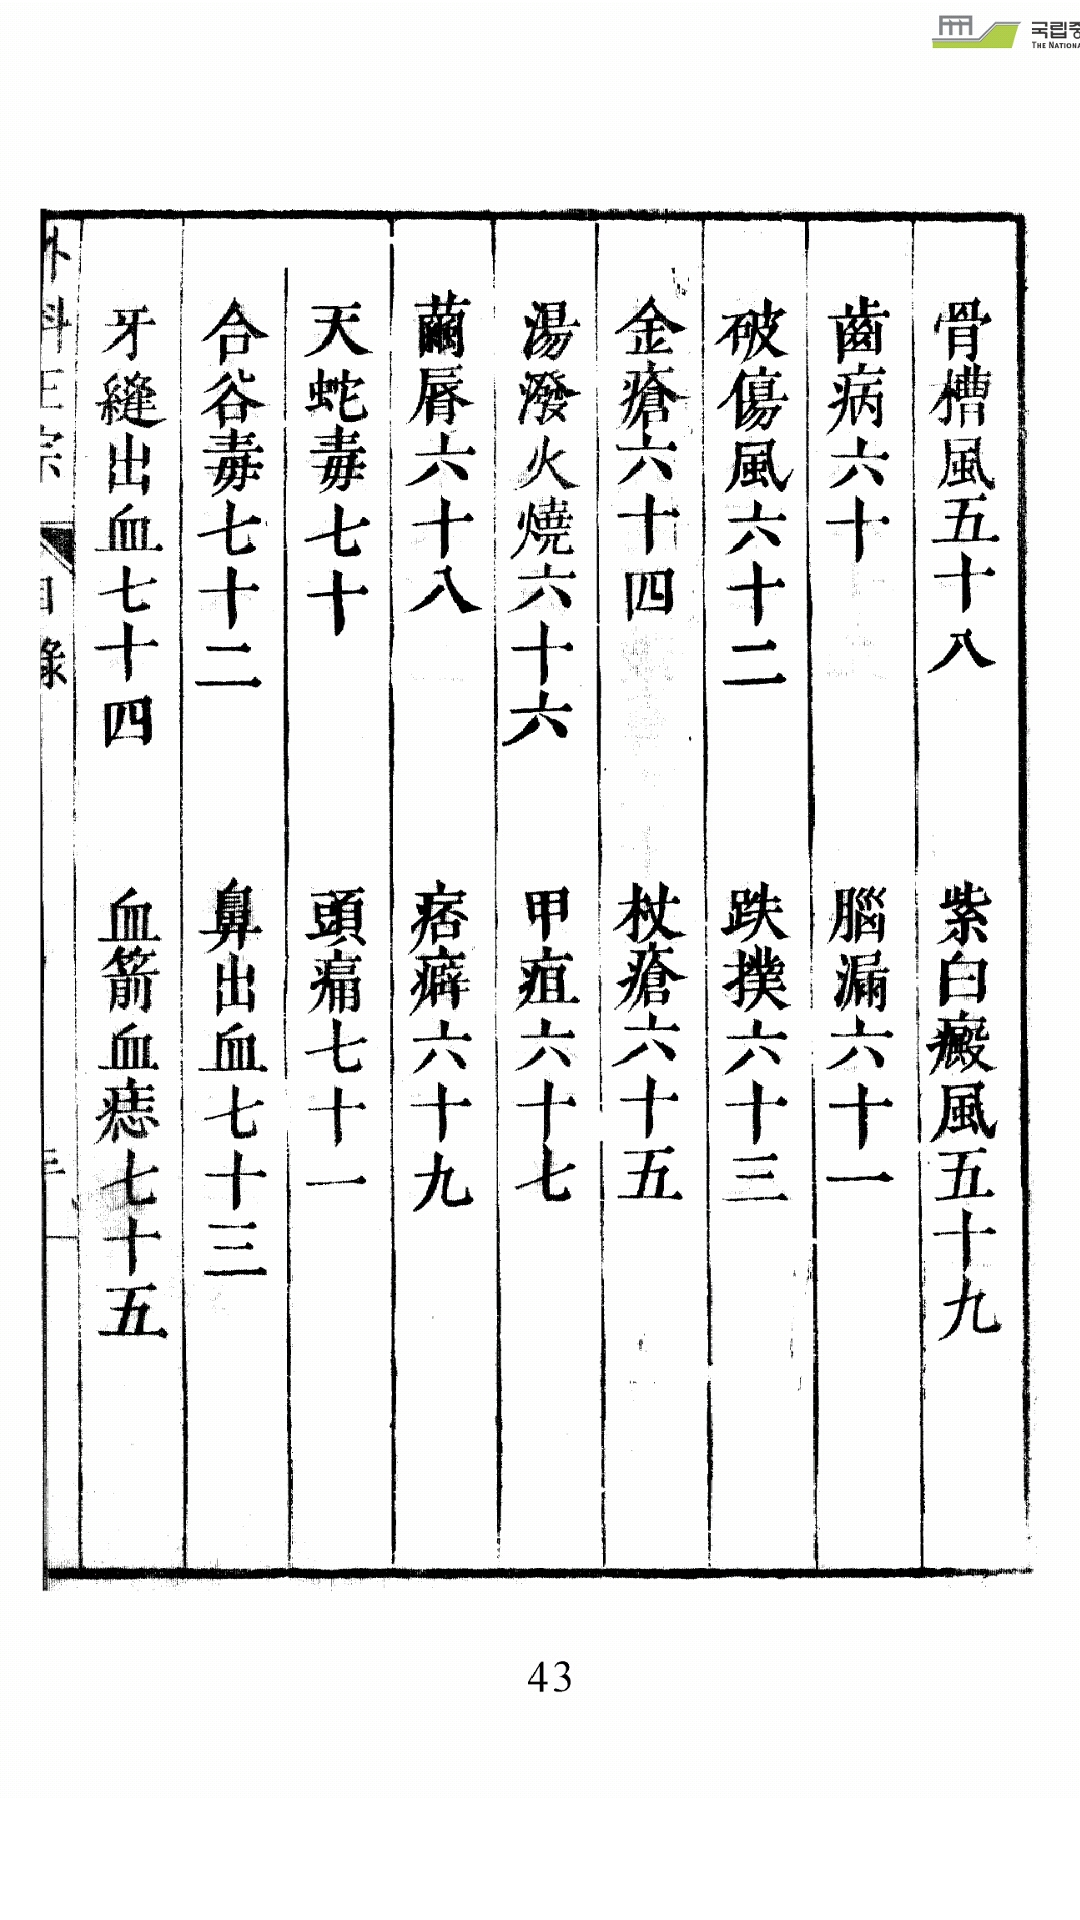 국립중
THE NATIONA
骨槽風五十八 紫白癜風五十九
齒病六十 腦漏六十一
破傷風六十二 跌撲六十三
金瘡六十四 杖瘡六十五
湯潑火燒六十六 甲疽六十七
繭脣六十八 痞癖六十九
天蛇毒七十 頭痛七十一
合谷毒七十二 鼻出血七十三
牙縫出血七十四 血箭血痣七十五
外科正宗 目錄 三
43